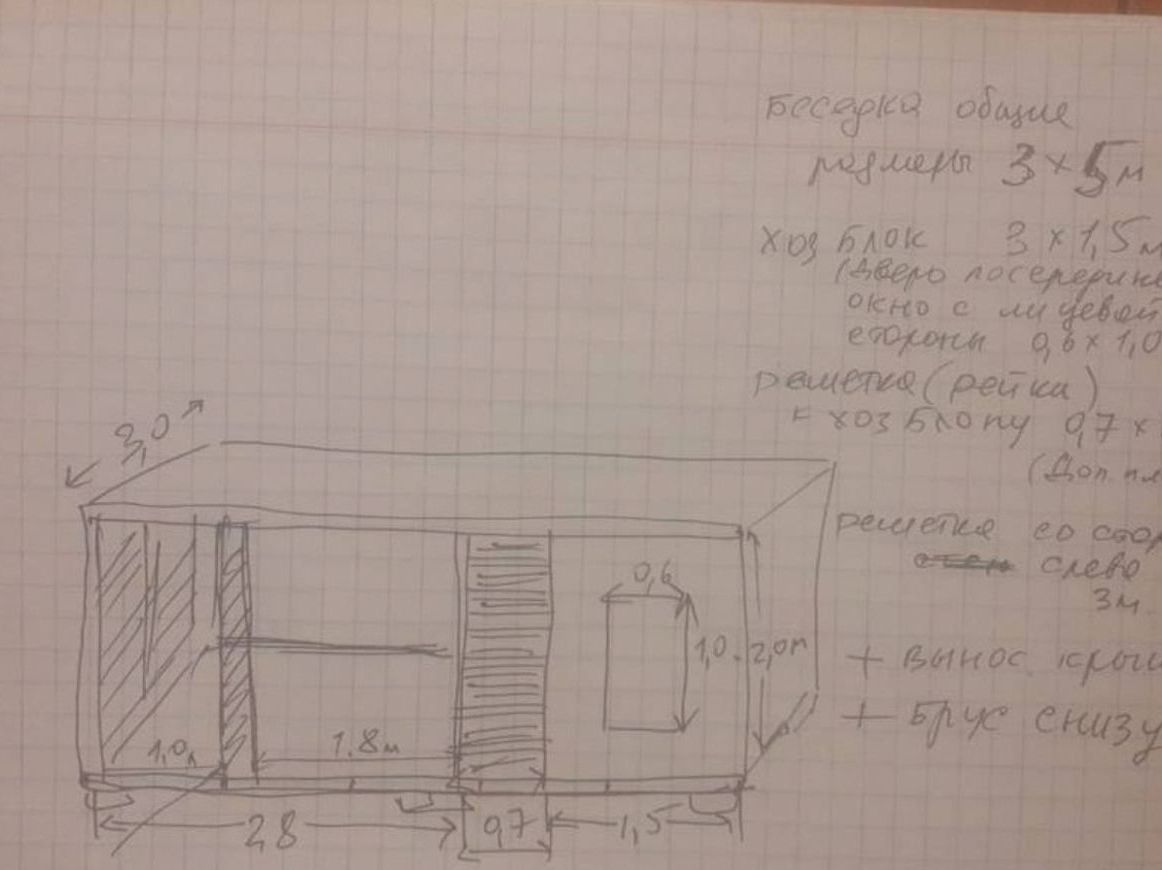 Беседка общие
размеры 3 x 5 м
Хоз Блок 3 x 1,5 м
(Дверь посередине
окно с лицевой
стороны 0,6 x 1,0
решетка (рейка)
к хоз блоку 0,7 x
(Доп. пл
решетка со стор
слева
3м.
+ вынос крыш
+ Брус снизу
3,0
0,6
1,0
2,0м
1,0
1,8м
2,8
0,7
1,5